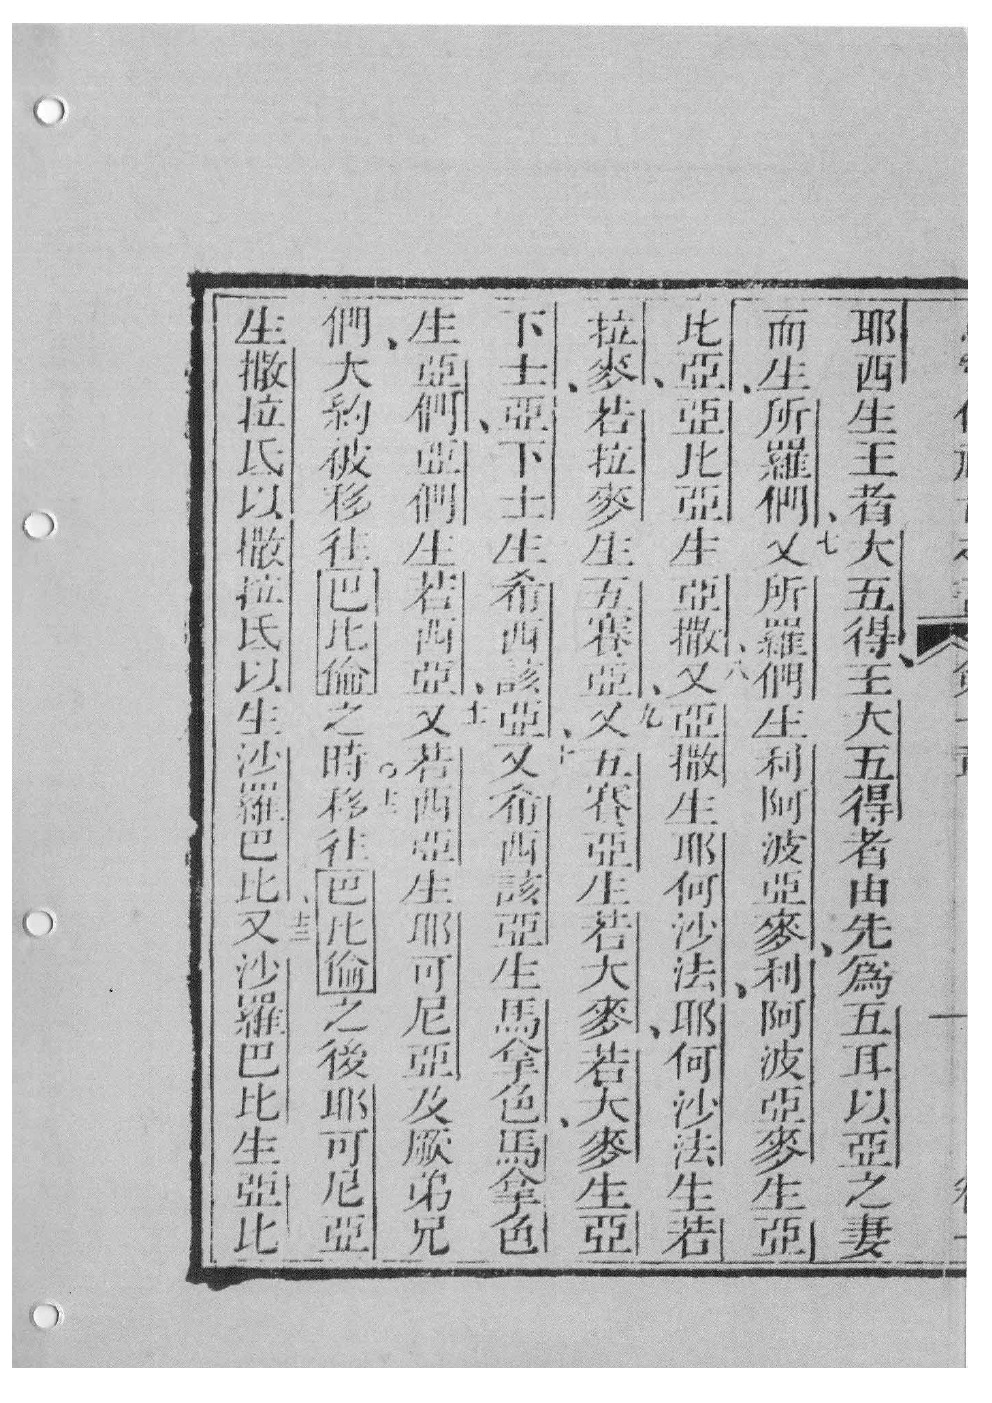 耶西生王者大五得、王大五得者由先為五耳以亞之妻
而生所羅們、七又所羅們生利阿波亞麥、利阿波亞麥生亞
比亞、亞比亞生亞撒、八又亞撒生耶何沙法、耶何沙法生若
拉麥、若拉麥生五賽亞、九又五賽亞生若大麥、若大麥生亞
下士、亞下士生希西該亞、十又希西該亞生馬拿色、馬拿色
生亞們、亞們生若西亞、十一又若西亞生耶可尼亞及厥弟兄
們、大約被移往巴比倫之時○十二移往巴比倫之後耶可尼亞
生撒拉氐以撒拉氐以生沙羅巴比、十三又沙羅巴比生亞比